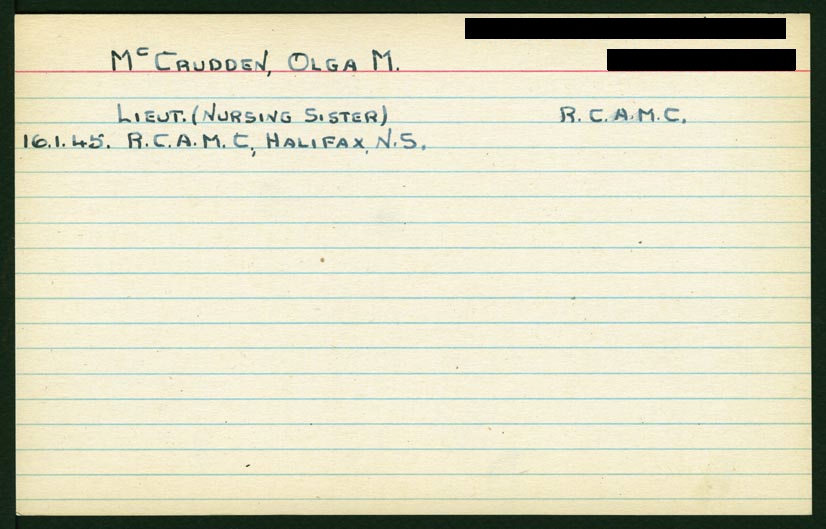 McCrudden, Olga M.
Lieut. (Nursing Sister) R.C.A.M.C.
16.1.45. R.C.A.M.C, Halifax, N.S.